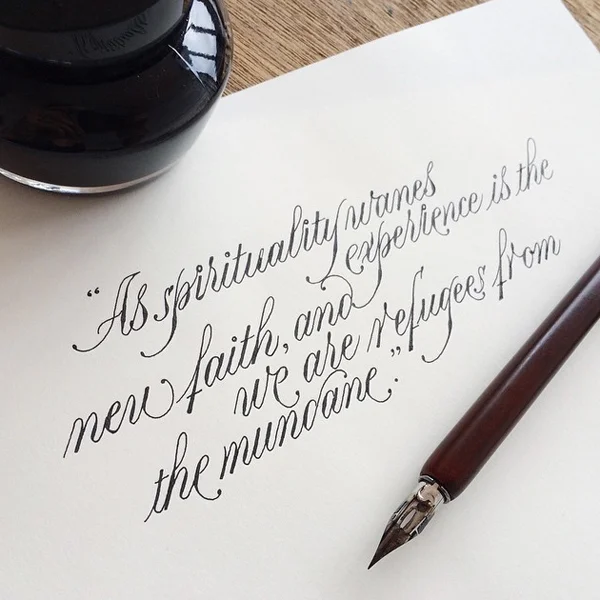 “As spirituality wanes
experience is the
new faith, and
we are refugees from
the mundane.”